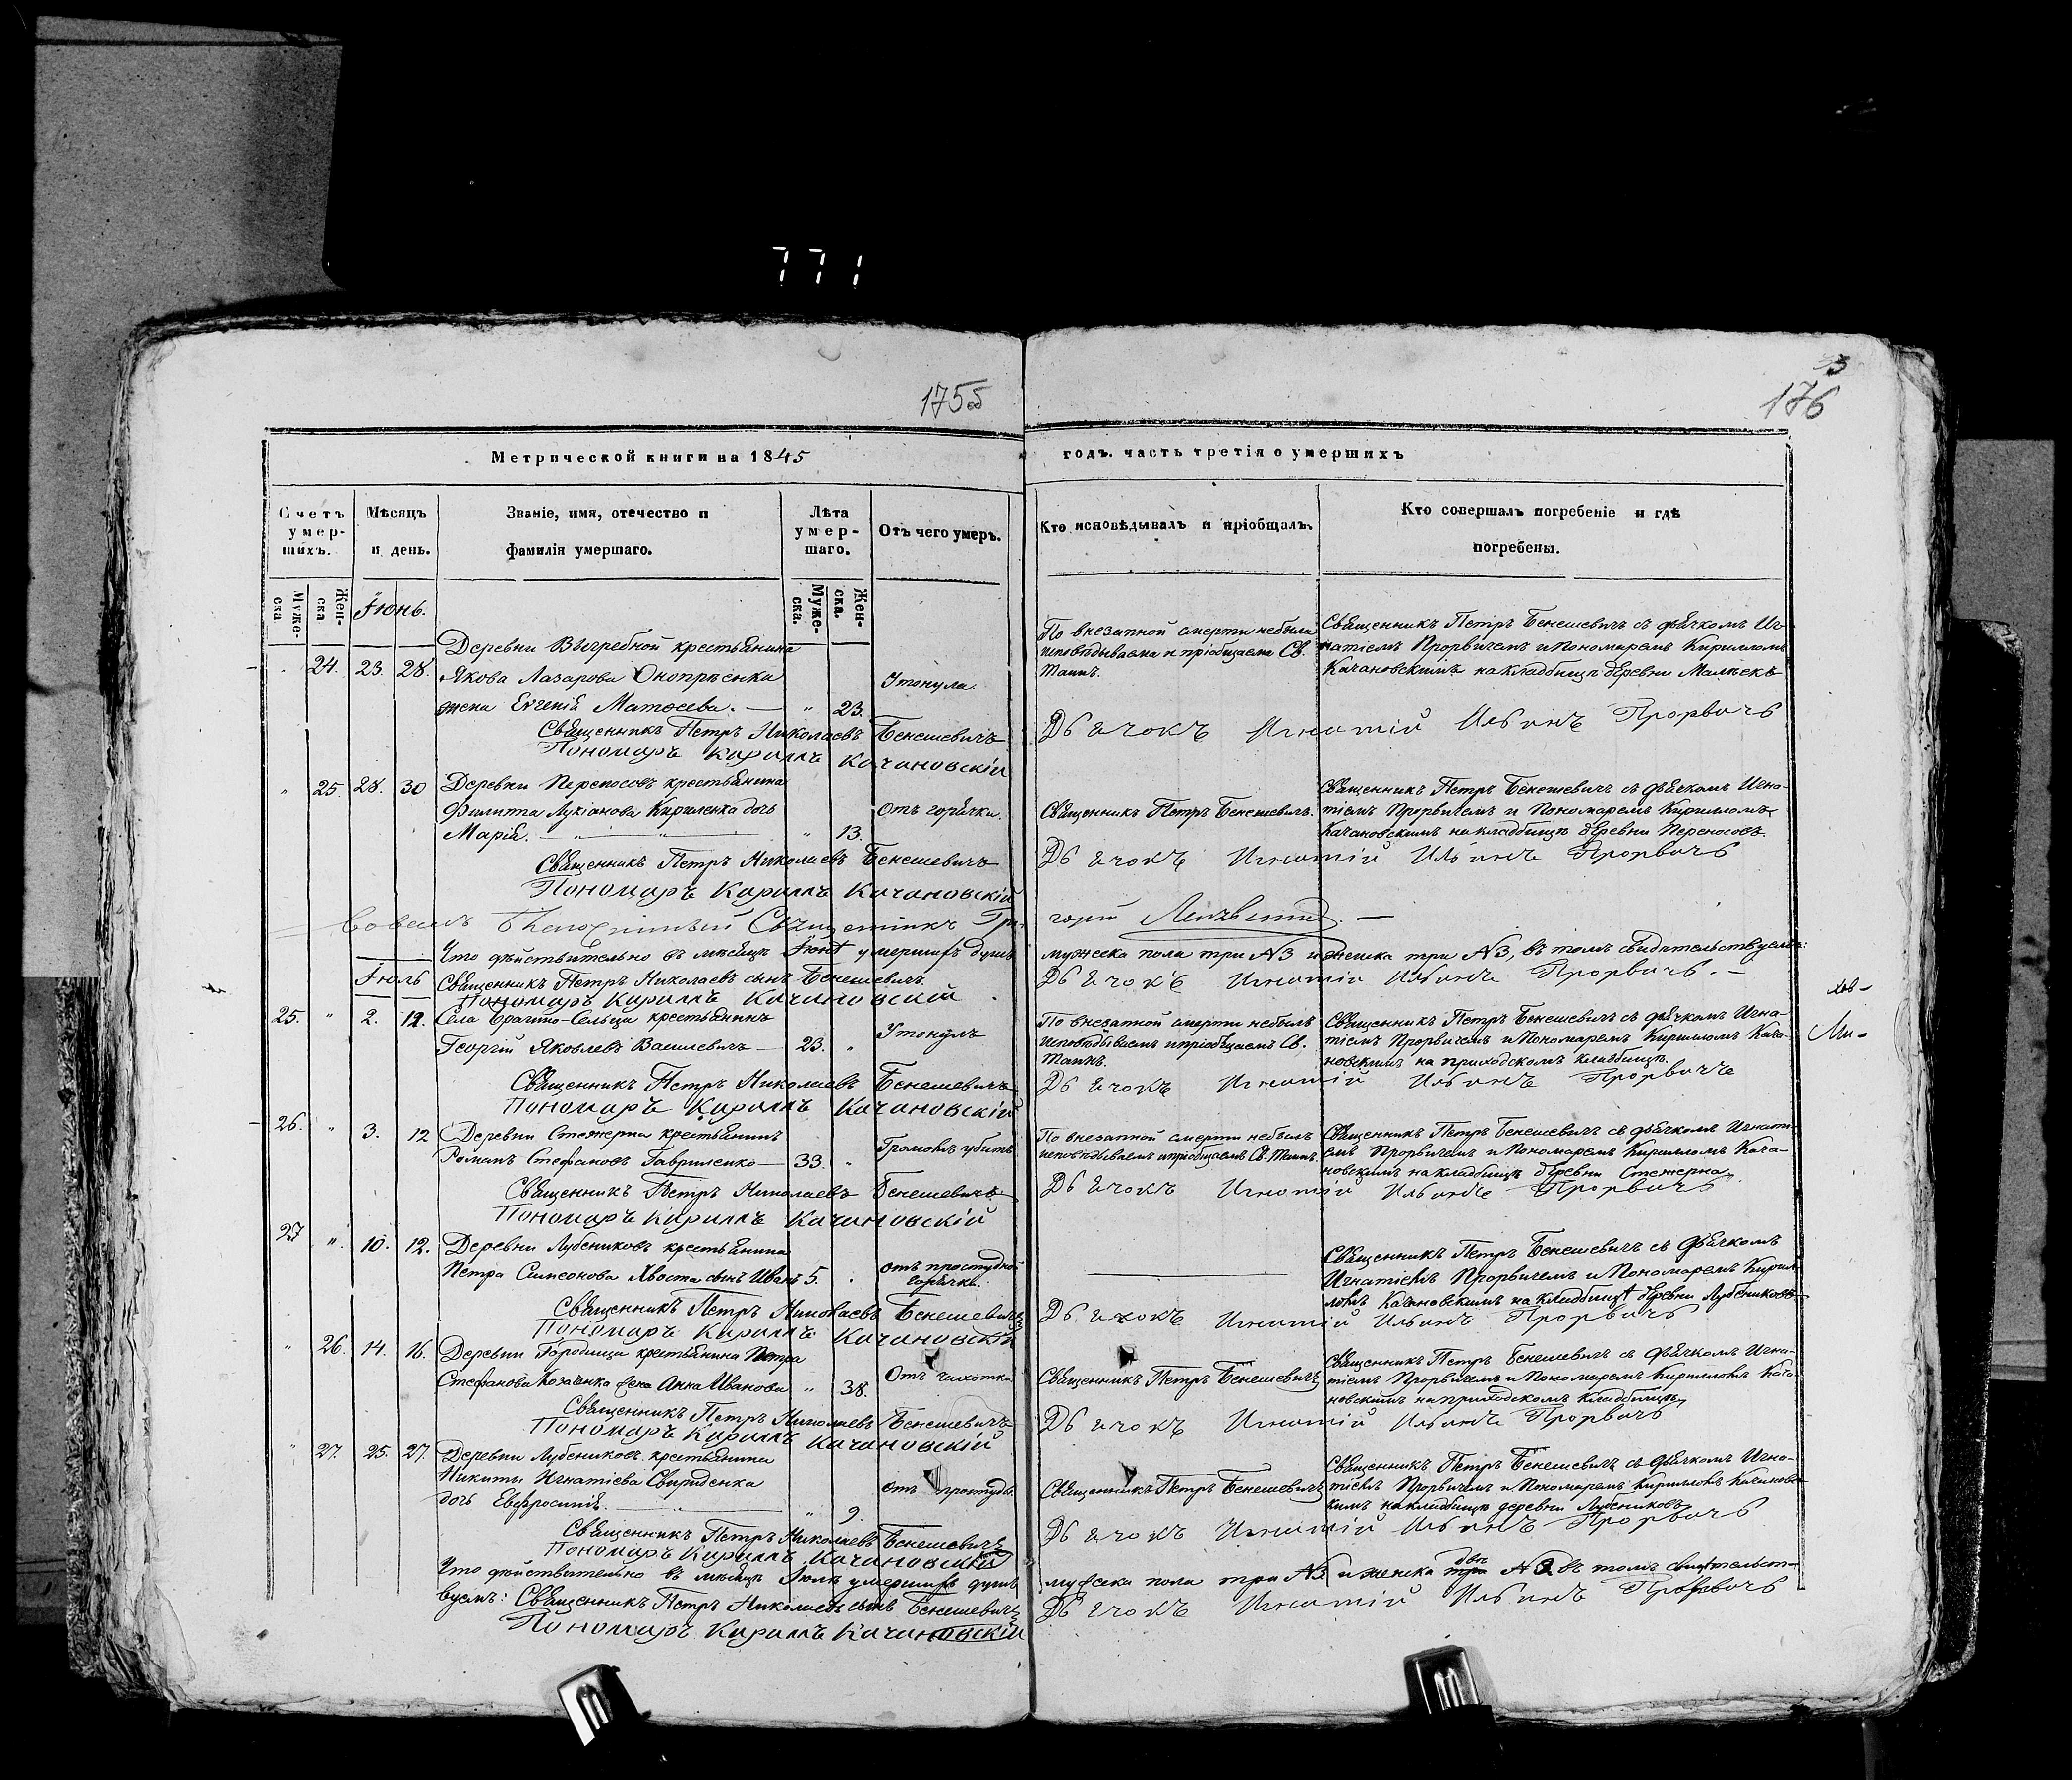 771
175об
53
176
Метрической книги на 1845
годъ. часть третія о умершихъ
Счетъ умер-
шихъ.
Мѣсяцъ
и день.
Званіе, имя, отечество и
фамилія умершаго.
Лѣта
умер-
шаго.
Отъ чего умеръ.
Кто исповѣдывалъ и пріобщалъ.
Кто совершалъ погребеніе и гдѣ
погребены.
Муже-
ска
Жен-
ска
Муже-
ска.
Жен-
ска.
Іюнь.
Деревни Выгребной крестьянина
24. 23. 28. Якова Лазарова Онопрѣенка
Утонула.
жена Евгенія Матѳеева. — " 23.
По внезапной смерти небыла
исповѣдываема и пріобщаема Св.
Таинъ.
Священникъ Петръ Бенешевичъ съ дьячкомъ Иг-
натіемъ Прорвичемъ и Пономаремъ Кирилломъ
Качановскимъ на кладбищѣ деревни
Священникъ Петръ Николаевъ Бенешевичъ
Дьячокъ Игнатій Ильинъ Прорвичъ
Пономаръ Кириллъ Качановскій
" 25. 28. 30 Деревни Переносовъ крестьянина
Филиппа Лукіанова Кириленка дочь
Отъ горячки.
Марія. — " — " 13.
Священникъ Петръ Бенешевичъ.
Священникъ Петръ Бенешевичъ съ дьячкомъ Игна-
тіемъ Прорвичемъ и Пономаремъ Кирилломъ
Качановскимъ на кладбищѣ деревни Переносовъ.
Священникъ Петръ Николаевъ Бенешевичъ
Дьячокъ Игнатій Ильинъ Прорвичъ
Пономаръ Кириллъ Качановскій
Священникъ Гри-
горій
Что дѣйствительно въ мѣсяцѣ Іюнѣ умершихъ душъ
мужеска пола три №3 и женска три №3, въ томъ свидѣтельствуемъ:
Іюль
Священникъ Петръ Николаевъ сынъ Бенешевичъ.
Дьячокъ Игнатій Ильинъ Прорвичъ. —
Пономаръ Кириллъ Качановскій
25. " 2. 12. Села Брагино-Сельца крестьянинъ
Утонулъ
Георгій Яковлевъ Василевичъ — 23. "
По внезапной смерти небылъ
исповѣдываемъ и пріобщаемъ Св.
Таинъ.
Священникъ Петръ Бенешевичъ съ дьячкомъ Игна-
тіемъ Прорвичемъ и Пономаремъ Кирилломъ Кача-
новскимъ на приходскомъ кладбищѣ.
Священникъ Петръ Николаевъ Бенешевичъ
Дьячокъ Игнатій Ильинъ Прорвичъ
Пономаръ Кириллъ Качановскій
26. " 3. 12 Деревни Стежерна крестьянинъ
Громомъ убитъ
Романъ Стефановъ Гавриленко — 33. "
По внезапной смерти небылъ
исповѣдываемъ и пріобщаемъ Св. Таинъ.
Священникъ Петръ Бенешевичъ съ дьячкомъ Игнаті-
емъ Прорвичемъ и Пономаремъ Кирилломъ Кача-
новскимъ на кладбищѣ деревни Стежерна.
Священникъ Петръ Николаевъ Бенешевичъ
Дьячокъ Игнатій Ильинъ Прорвичъ
Пономаръ Кириллъ Качановскій
27 " 10. 12. Деревни Лубениковъ крестьянина
Петра Симеонова Хвоста сынъ Иванъ 5.
отъ простудной
горячки.
Священникъ Петръ Бенешевичъ съ дьячкомъ
Игнатіемъ Прорвичемъ и Пономаремъ Кирил-
ломъ Качановскимъ на кладбищѣ деревни Лубениковъ
Священникъ Петръ Николаевъ Бенешевичъ
Дьячокъ Игнатій Ильинъ Прорвичъ
Пономаръ Кириллъ Качановскій
" 26. 14. 16. Деревни Городища крестьянина Петра
Стефанова Козаченка жена Анна Иванова " 38.
Отъ чахотки
Священникъ Петръ Бенешевичъ
Священникъ Петръ Бенешевичъ съ дьячкомъ Игна-
тіемъ Прорвичемъ и Пономаремъ Кирилломъ Кача-
новскимъ на приходскомъ кладбищѣ.
Священникъ Петръ Николаевъ Бенешевичъ
Дьячокъ Игнатій Ильинъ Прорвичъ
Пономаръ Кириллъ Качановскій
" 27. 25. 27. Деревни Лубениковъ крестьянина
Никиты Игнатіева Свириденка
отъ простуды.
дочь Евфросинія. — " 9.
Священникъ Петръ Бенешевичъ
Священникъ Петръ Бенешевичъ съ дьячкомъ Игна-
тіемъ Прорвичемъ и Пономаремъ Кирилломъ Качановс-
кимъ на кладбищѣ деревни Лубениковъ
Священникъ Петръ Николаевъ Бенешевичъ
Дьячокъ Игнатій Ильинъ Прорвичъ
Пономаръ Кириллъ Качановскій
Что дѣйствительно въ мѣсяцѣ Іюлѣ умершихъ душъ
мужеска пола три №3 и женска двѣ №2 въ томъ свидѣтельст-
вуемъ: Священникъ Петръ Николаевъ сынъ Бенешевичъ
Дьячокъ Игнатій Ильинъ Прорвичъ
Пономаръ Кириллъ Качановскій